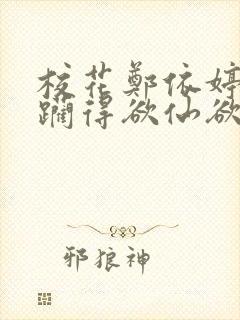 校花鄭依婷
躙得欲仙欲
邪狼神